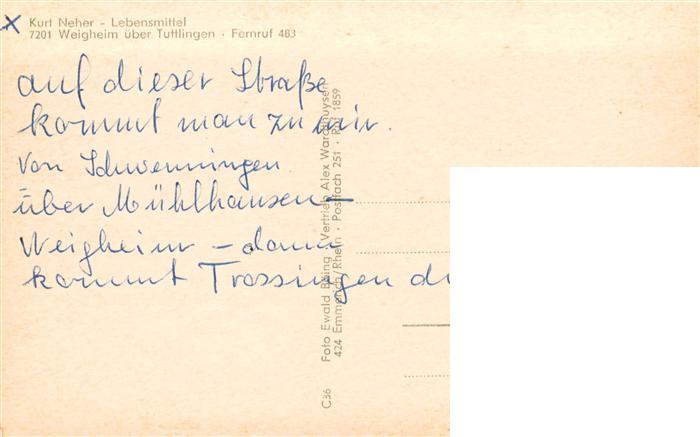 Kurt Neher - Lebensmittel
7201 Weigheim über Tuttlingen · Fernruf 483
auf dieser Straße
kommt man zu mir.
von Schwenningen
über Mühlhausen -
Weigheim - dann
kommt Trossingen
Foto Ewald Böing · Vertrieb Alex Wardthuysen
424 Emmerich/Rhein · Postfach 251 · Ruf 1859
C36